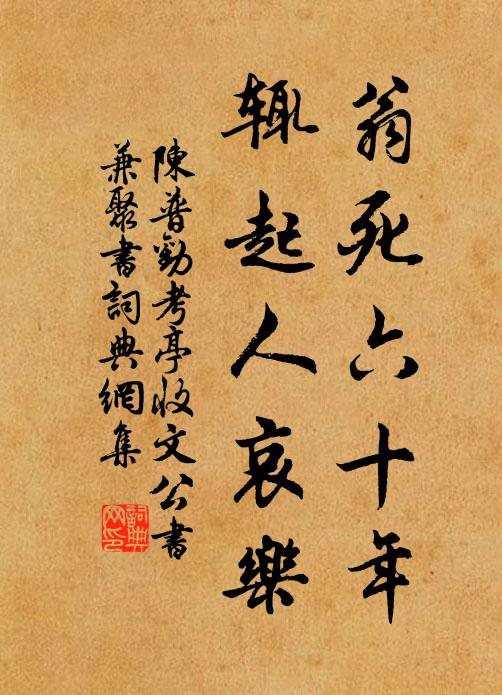 翁死六十年
輒起人哀樂
陳普勸考亭收文公書
兼聚書詞典網集
詞典網印